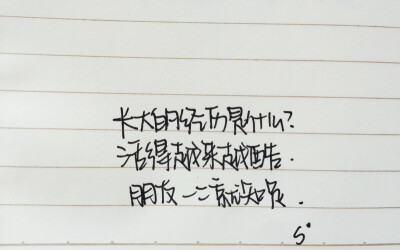 长大的经历是什么?
活得越来越酷.
朋友一二就知足.
S